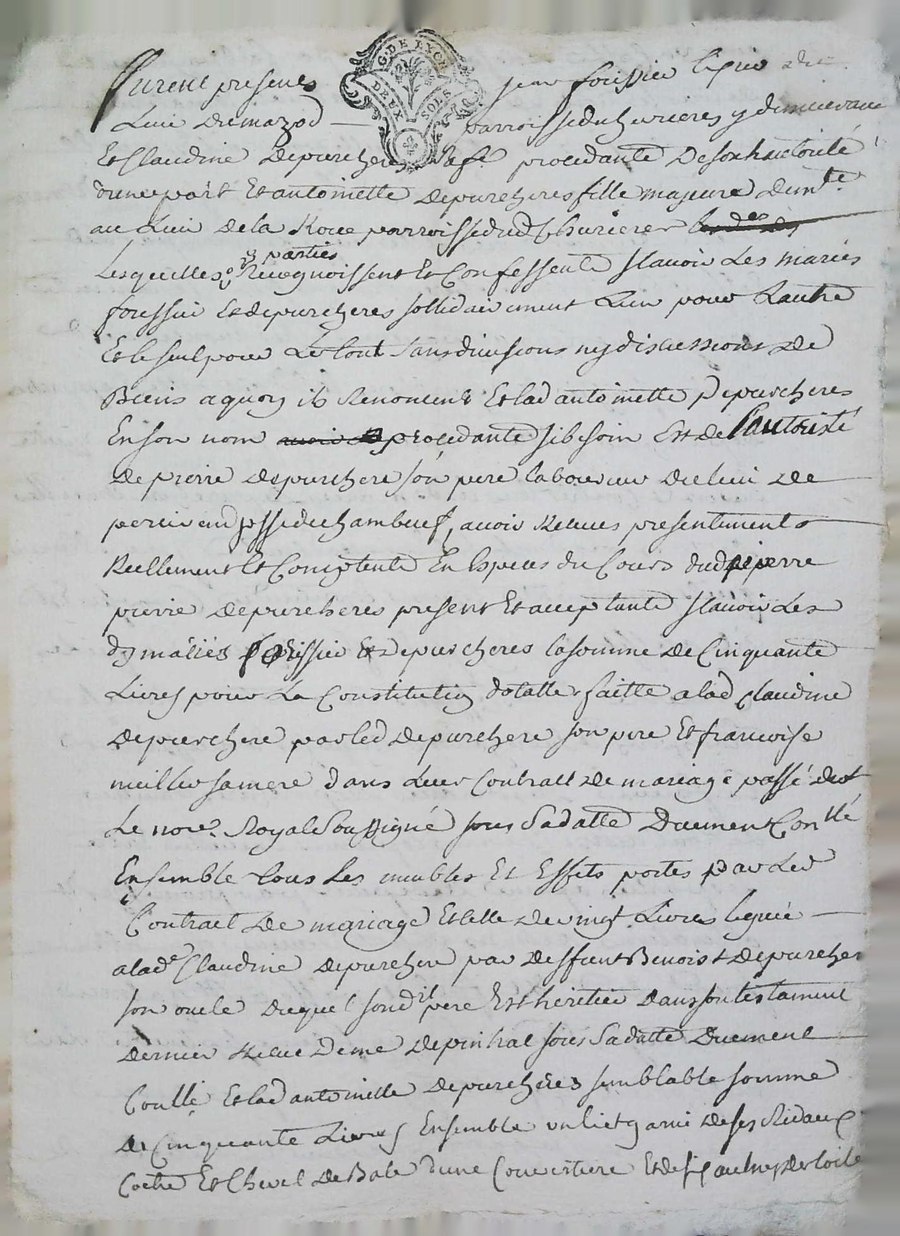 Furent presens jean foussier
G. DE EXCH
DE EX SOLS
Lieu de mazod parroisse du heurieres y demeurant
Et Claudine depurchere sa fe procedante De son hautorité
d'une part Et antoinette depurcheres fille majeure demte
au Lieu De la Roue parroisse dud heurieres
Lesquelles parties Recognoissent Et Confessent sçavoir Les mariés
foussier Et depurcheres sollidairement Lun pour Lautre
Et le seul pour Le tout sans divisions ny discussions de
Biens a quoy ils Renoncent Et lad antoinette Depurcheres
En son nom procedante si besoin Est de L'autorité
De pierre depurchere son pere laboureur du lieu de
psse de chambeuf, avoir Recues presentement
Reellement Et Comptent En Especes du Cours dud pierre
pierre depurcheres present Et acceptant sçavoir Les
ds mariés foussier Et depurcheres la somme de Cinquante
Livres pour La Constitution dotalle faitte a lad Claudine
depurchere par led depurchere son pere Et francoise
meiller sa mere dans Leur Contratt de mariage passé devt
Le nore Royal Soussigné sous Sa datte Duement Conllé
Ensemble tous Les meubles Et Effets portes par Led
Contrait De mariage Et celle de vingt Livres leguée
a lade Claudine depurchere par deffunt Benoist depurchere
son oncle duquel sond pere Est heritier dans son testament
dernier Recue de me depinhal sous Sa datte Duement
Conllé Et lad antoinette depurcheres semblable somme
de Cinquante Livres Ensemble un liet garni de ses Rideaux
Coetre Et Chevet de Bale d'une Couverture Et de six autres de toile